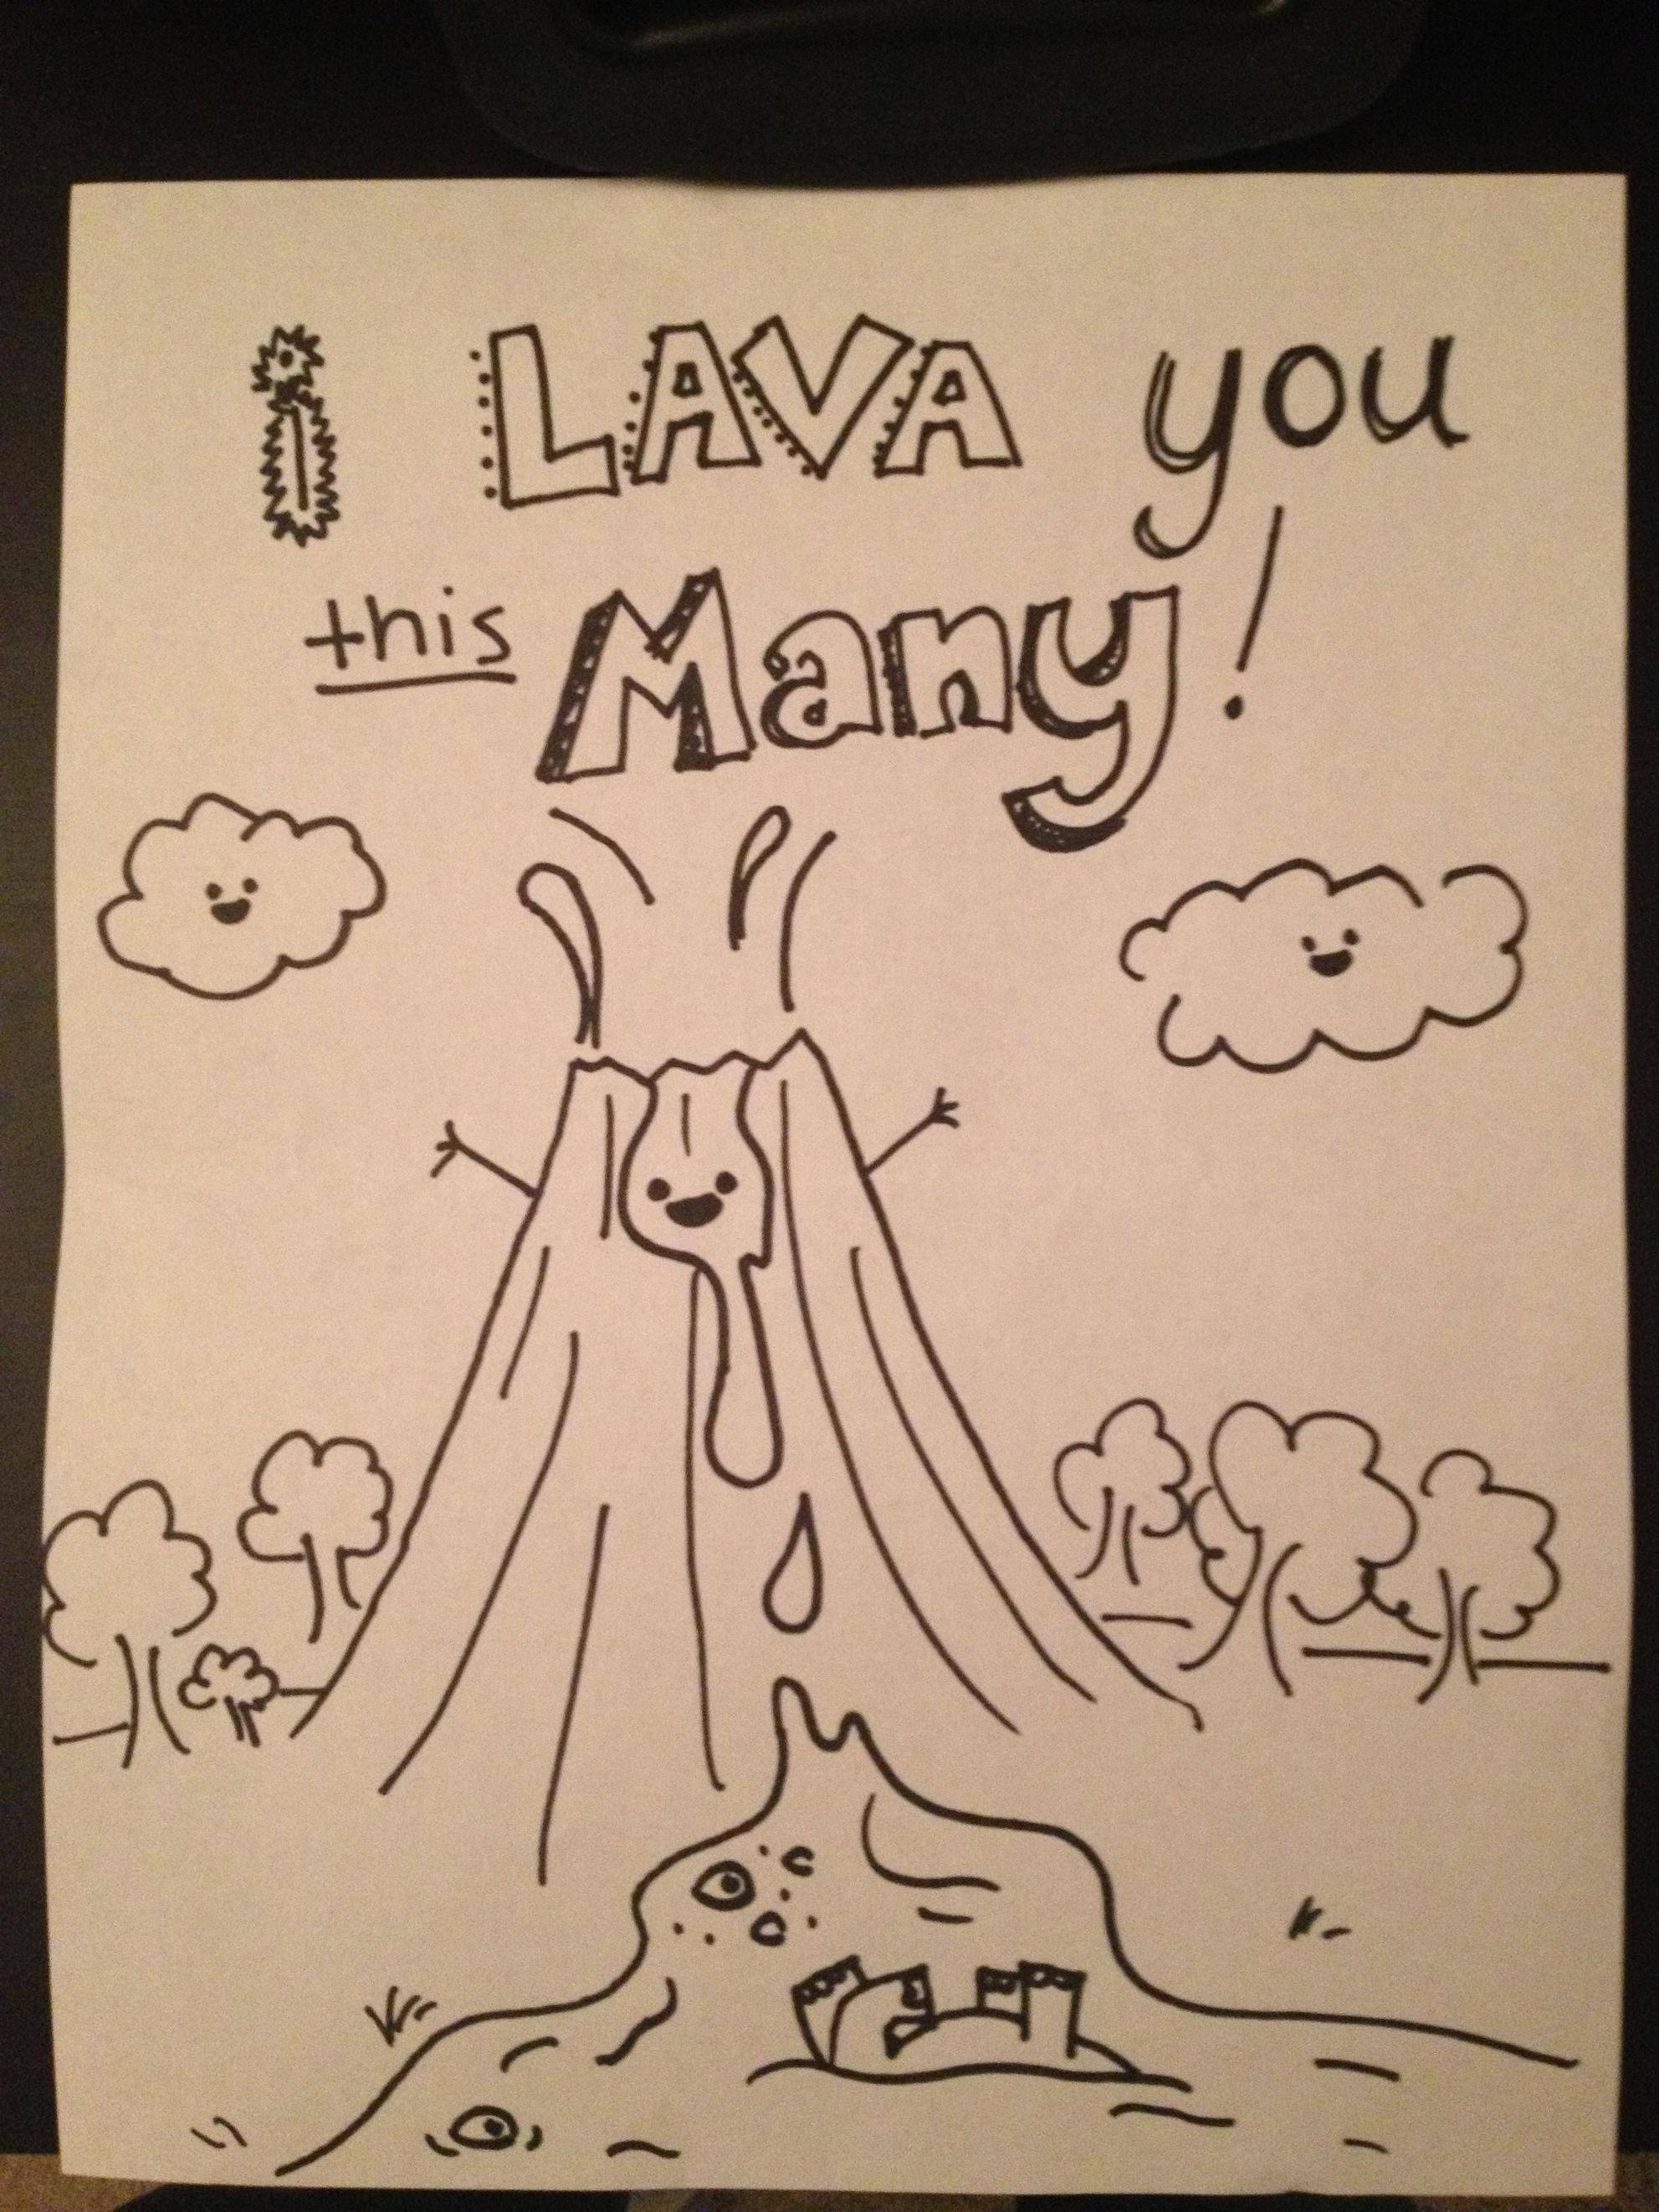 i LAVA you
this Many!